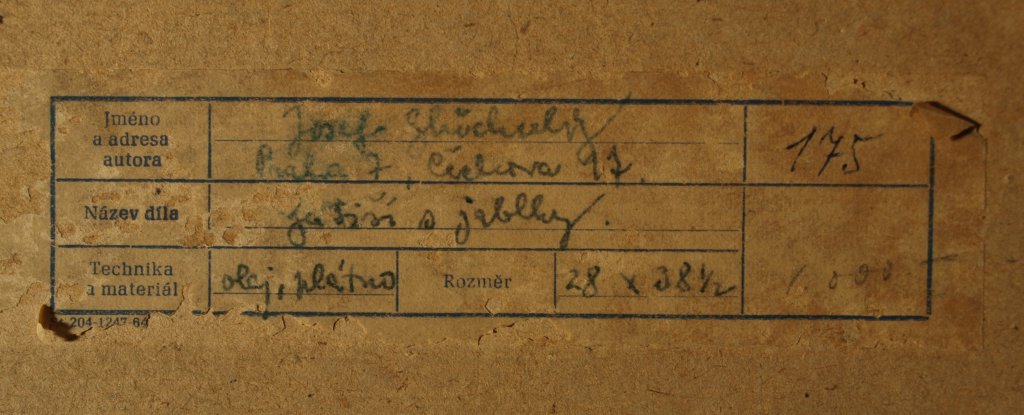 Jméno
a adresa
autora
Josef
Praha 7,
175
Název díla
zátiší s jablky.
Technika
a materiál
olej, plátno
Rozměr
28 x 38½
204-1247-64